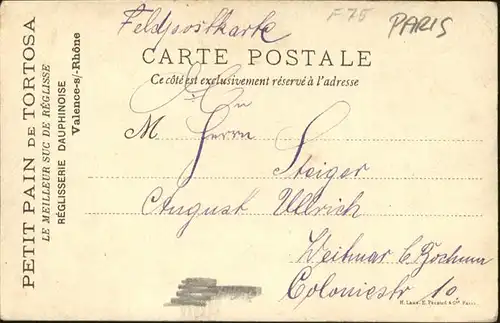 PETIT PAIN DE TORTOSA
LE MEILLEUR SUC DE RÉGLISSE
RÉGLISSERIE DAUPHINOISE
Valence-s/-Rhône
Feldpostkarte
F75
PARIS
CARTE POSTALE
Ce côté est exclusivement réservé à l'adresse
An
M Herrn
Steiger
August Ullrich
Weitmar b. Bochum
Coloniestr 10